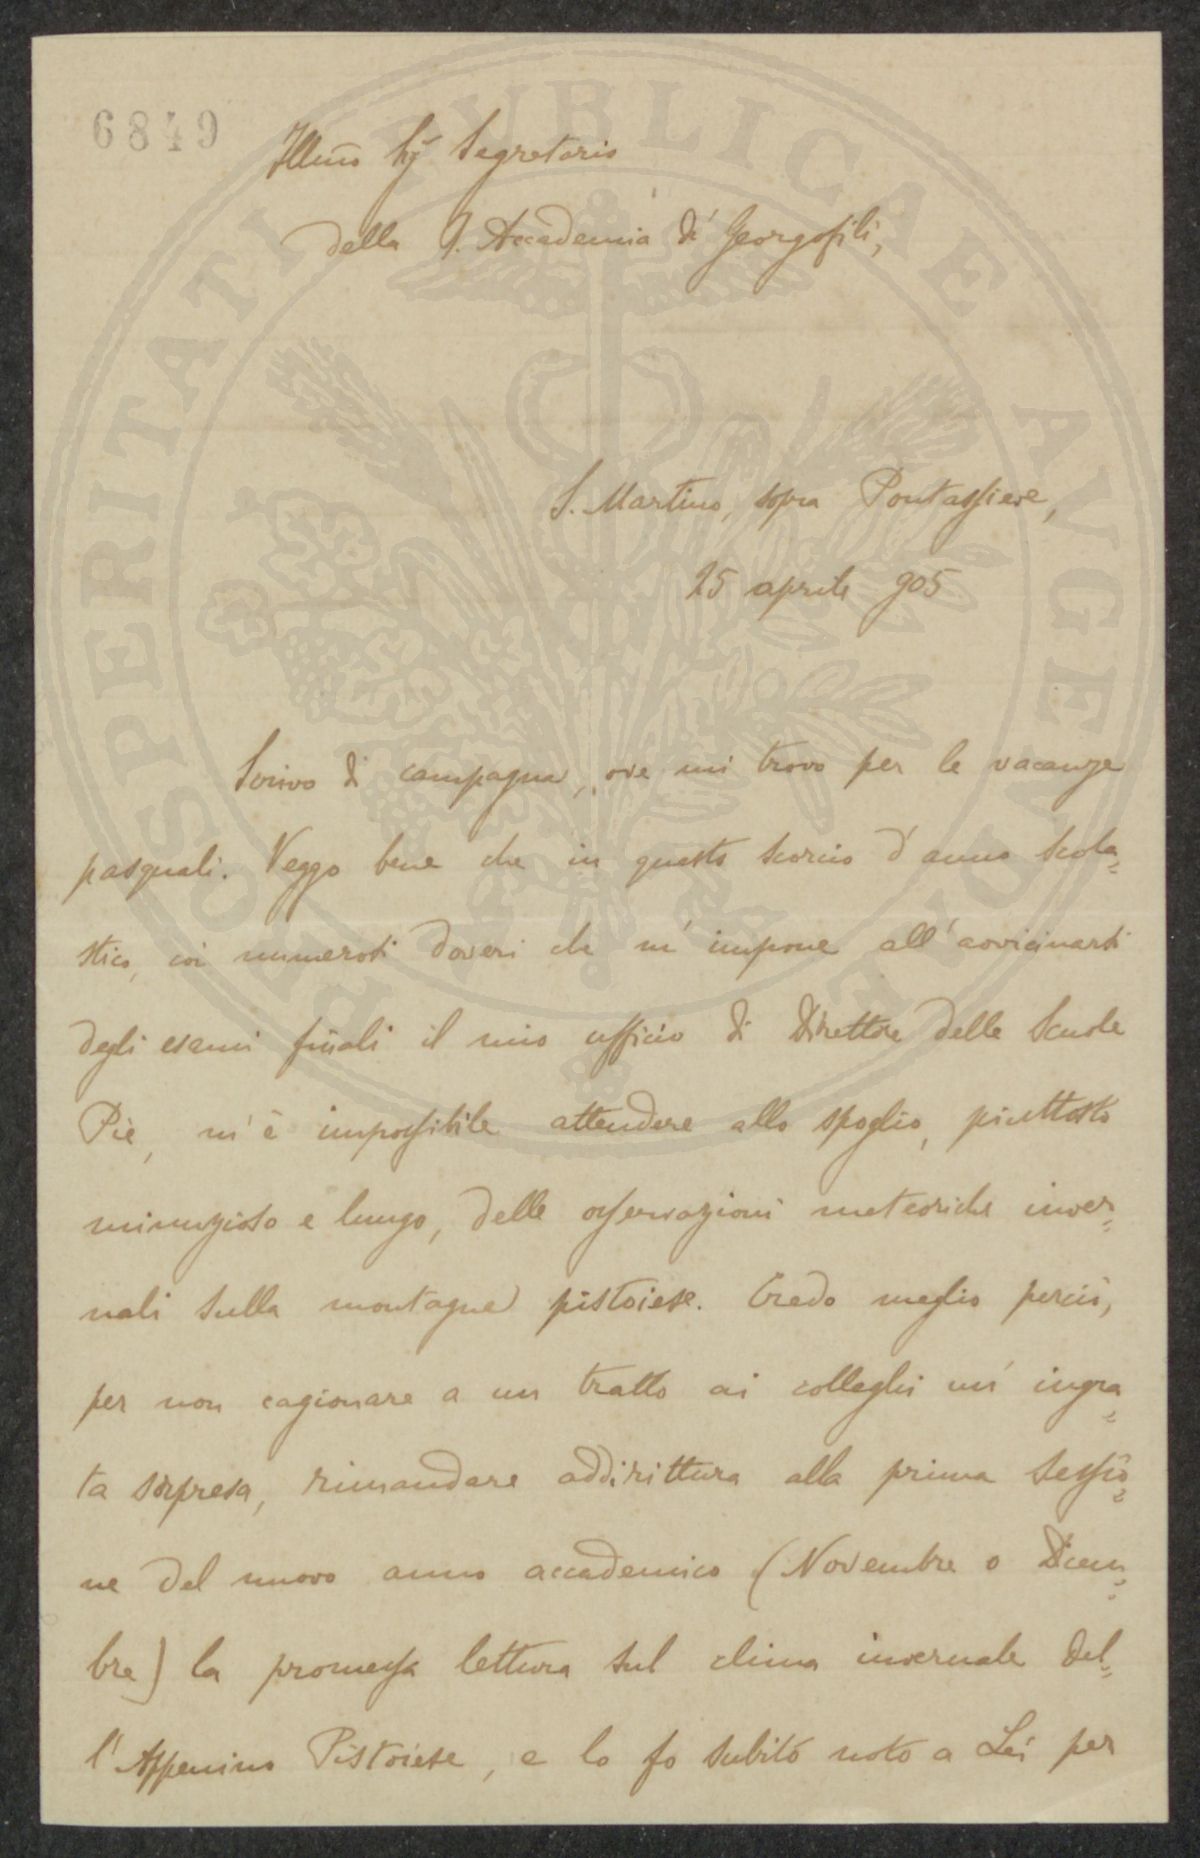 6849
Illmo Sig Segretario
della I. Accademia de' Georgofili,
S. Martino, sopra Pontassieve,
25 aprile 905
Scrivo di campagna, ove mi trovo per le vacanze
pasquali. Veggo bene che in questo scorcio d'anno scola=
stico, coi numerosi doveri che m'impone all'avvicinarsi
degli esami finali il mio ufficio di Direttore delle Scuole
Pie, m'è impossibile attendere allo spoglio, piuttosto
minuzioso e lungo, delle osservazioni meteoriche inver=
nali sulla montagna pistoiese. Credo meglio perciò,
per non cagionare a un tratto ai colleghi un'ingra=
ta sorpresa, rimandare addirittura alla prima sessio=
ne del nuovo anno accademico (Novembre o Dicem=
bre) la promessa lettura sul clima invernale del=
l'Appenino Pistoiese, e lo fo subito noto a Lei per
PROSPERITATI PVBLICAE AVGENDAE